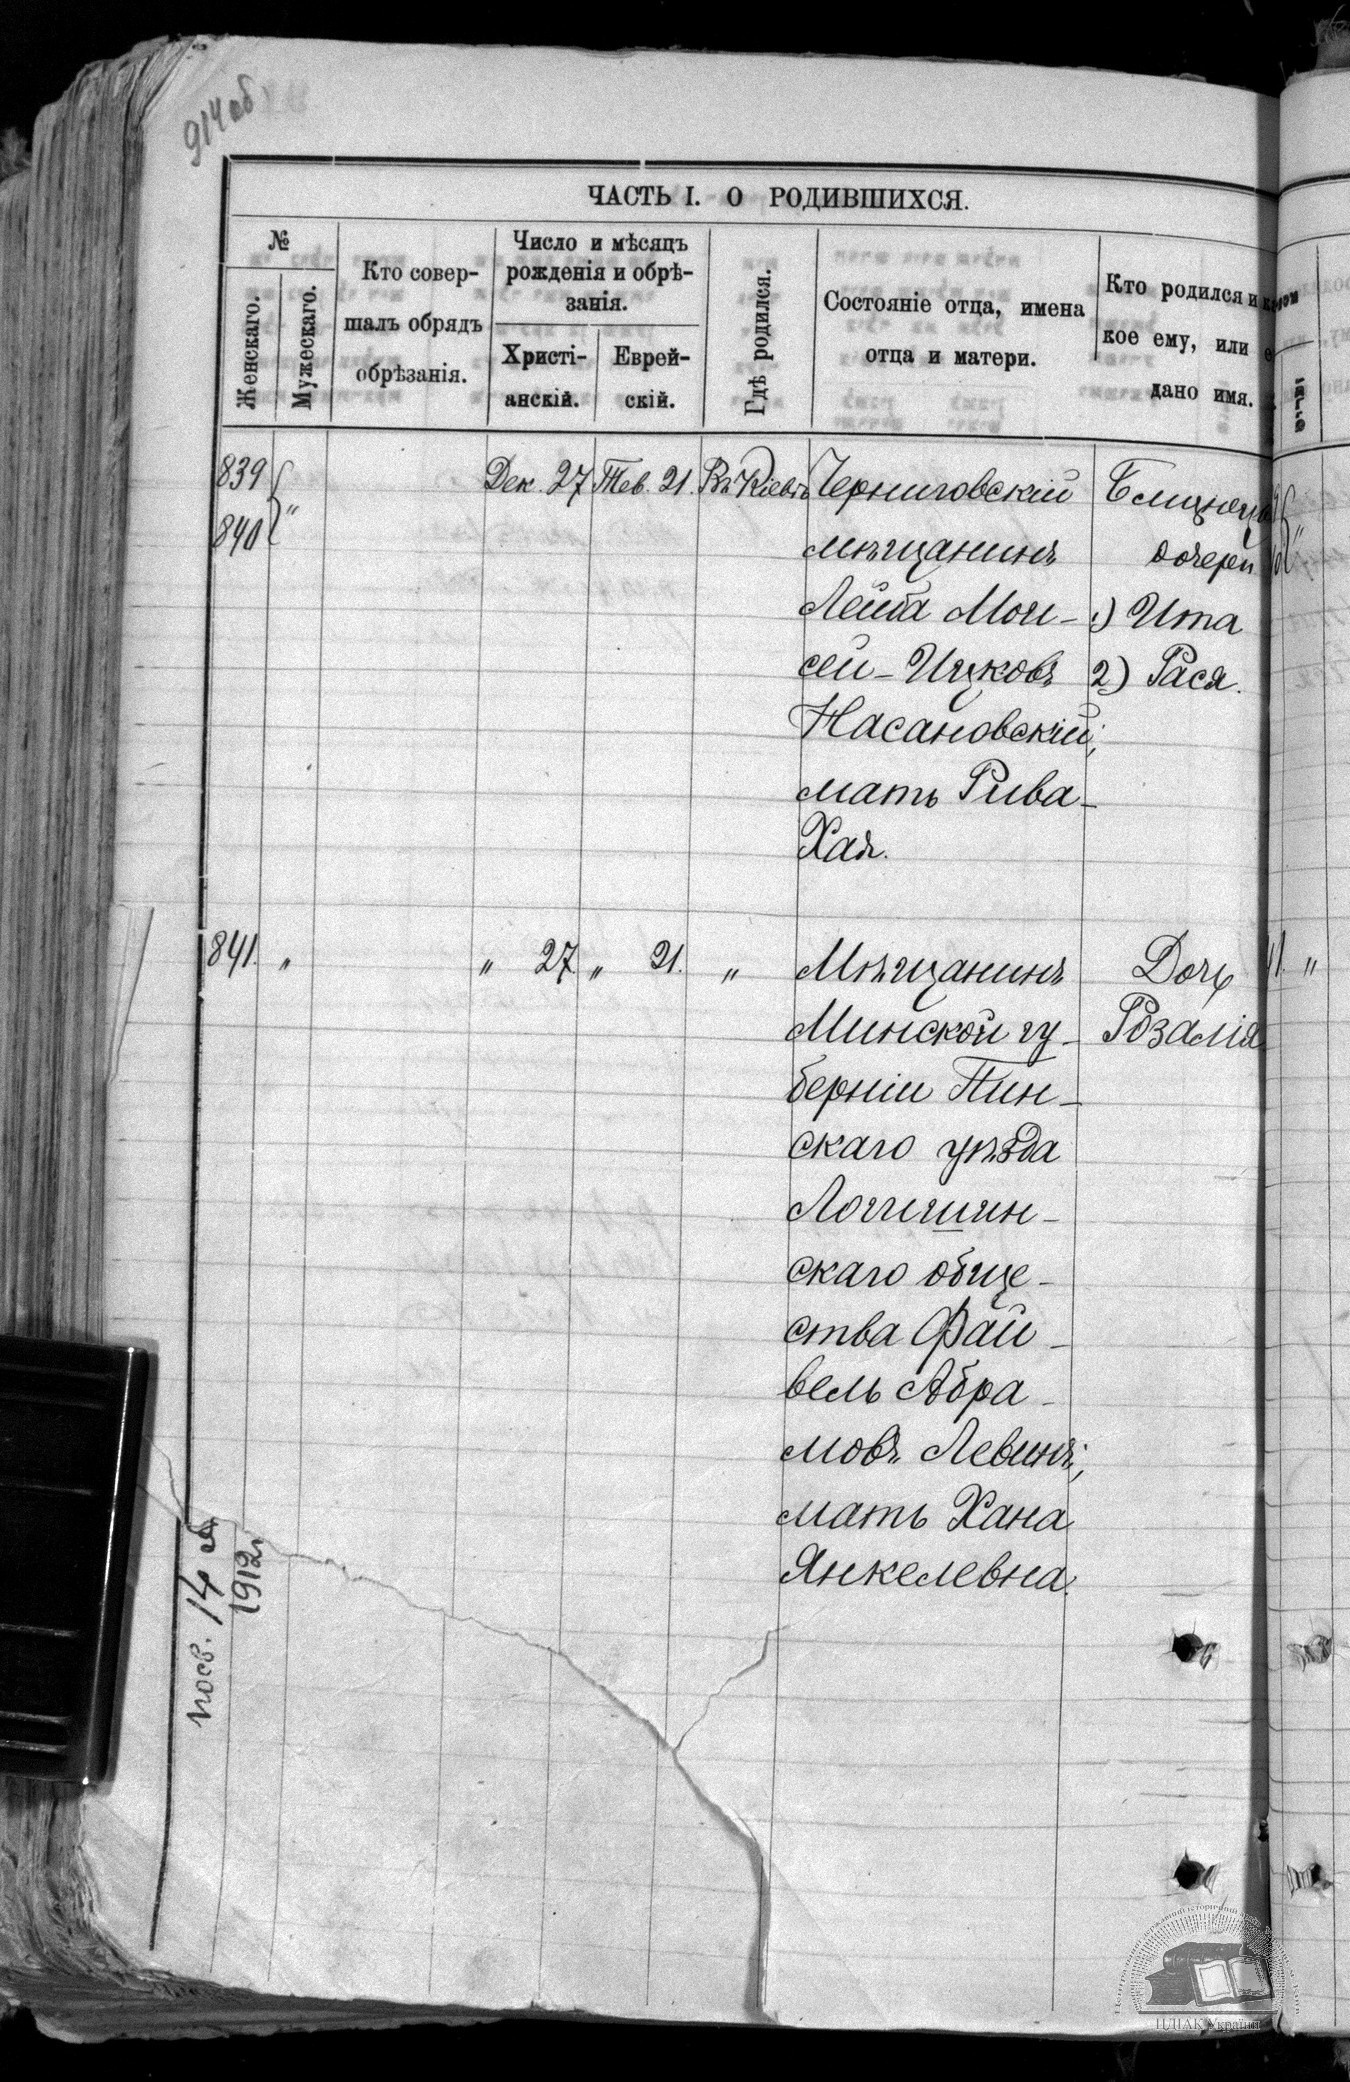 914 об
ЧАСТЬ I. О РОДИВШИХСЯ.
№
Женскаго.
Мужескаго.
Кто совер-
шалъ обрядъ
обрѣзанія.
Число и мѣсяцъ
рожденія и обрѣ-
занія.
Христі-
анскій.
Еврей-
скій.
Гдѣ родился.
Состояніе отца, имена
отца и матери.
Кто родился и ка
кое ему, или е
дано имя.
839
840
"
Дек. 27
Тев. 21.
Въ Кіевѣ
Черниговскій
мѣщанинъ
Лейба Мои-
сей-Ицковъ
Насановскій;
мать Рива-
Хая.
Близнецы
дочери
1) Ита
2) Рася.
841. " " 27. " 21. "
Мѣщанинъ
Минской гу-
берніи Пин-
скаго уѣзда
Логишин-
скаго обще-
ства Фай-
вель Абра-
мовъ Левинъ;
мать Хана
Янкелевна.
Дочь
Розалія
посв. 14
1912г
ЦДІАК України